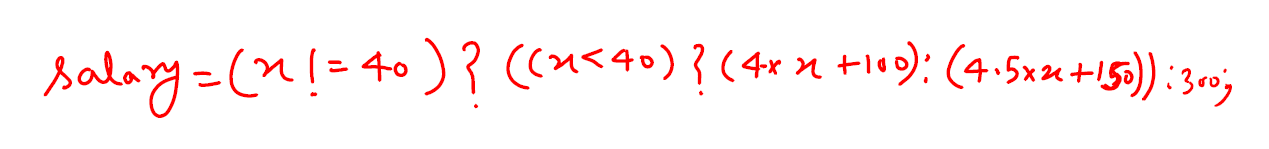 salary=(x!=40)?((x<40)?(4×x+100):(4.5×x+150)):300;